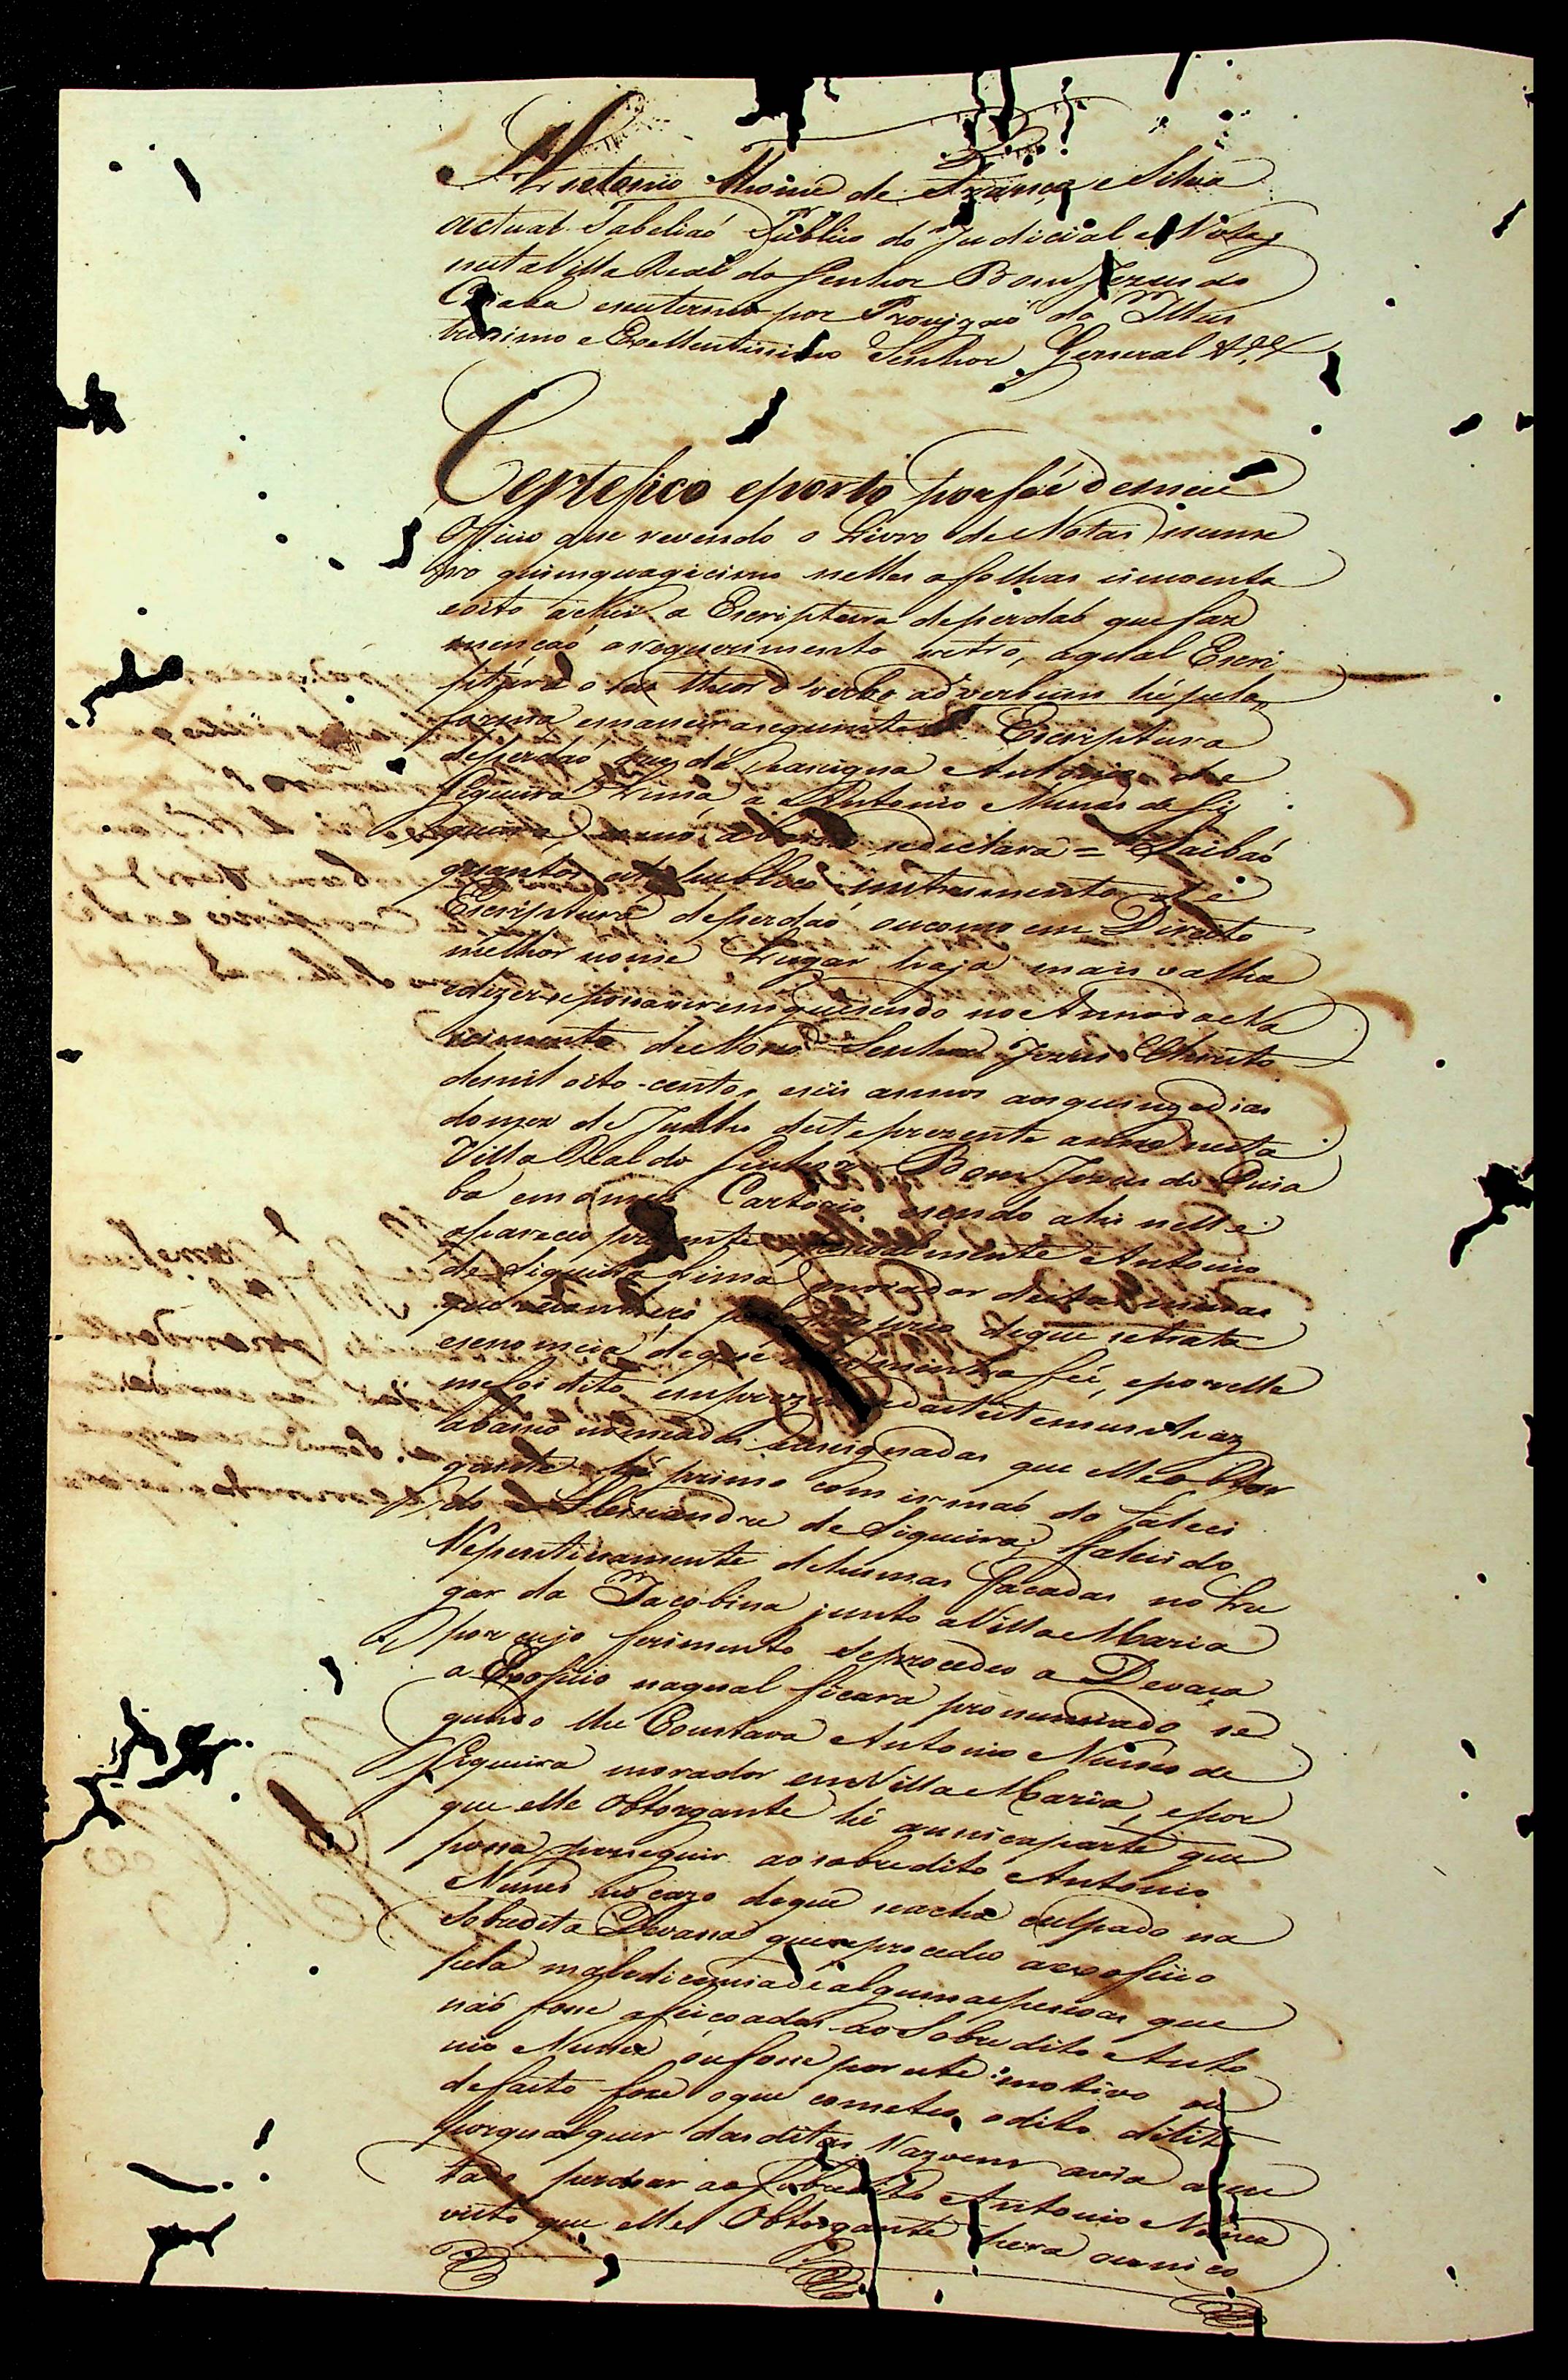 Antonio de França e Silva
actual Tabeliaõ Publico do Judicial e Notas
nesta Villa Real do Senhor Bom Jezus do
Cuiaba eseutermo por Provizaõ do Illus
trisimo e Excellentisimo Senhor General &&&
Certefico eporto por feé demeu
Officio que revendo o Livro de Notas nume
ro quinquagicimo nelles afolhas sincoenta
eoito achei a Escriptura deperdaõ que faz
mençaõ orequerimento retro, aqual Escri
ptura o seu theor d'verbo adverbum hé pela
forma emaneiraseguinte Escriptura
deperdaõ que dá easigna Antonio de
Siqueira Lima a Antonio Nunes de Si
queira, como abaixo sedeclara = Saibaõ
quantos este publico instrumento de
Escriptura deperdaõ oucomo em Direito
melhor nome Lugar haja mais valha
edizer sepossa virem quesendo no Anno do Na
cimento de Nosso Senhor Jezus Christo
demil oito-centos eseis annos aos quinze dias
domez de Julho desteprezente anno nesta
Villa Real do Senhor Bom Jezus do Cuia
ba em omeu Cartorio, esendo ahi nelle
apareceo prezente pesoalmente Antonio
de Siqueira Lima morador destas minas
que reconheço pelo proprio deque setrata
eseno meia deque dou minha feé, eporelle
mefoi dito emprezença dastestemunhas
abaixo nomeadas easignadas que elle obtor
gante hé primo com irmaõ do faleci
do Aleixandre de Siqueira, falecido
Repentinamente dehumas facadas no Lu
gar da Jacobina junto aVilla Maria
por cujo ferimento seprocedeo a Devaça
a Exoficio naqual ficara pronunciado se
gundo lhe Constava Antonio Nunes de
Siqueira morador em Villa Maria, epor
que elle Obtorgante hé aunicaparte que
possa perseguir aosobredito Antonio
Nunes nocazo deque seacha culpado na
Sobredita Devassa queseprocedeo aexoficio
pela maledicencia dealgumas pessoas que
naõ fosse afeicoadas ao Sobredito Anto
nio Nunes oufosse por este motivo ou
defacto fosse oque cometeo odito dilito
porqualquer das ditas Razoens avia
perdoar aoSobredito Antonio Nunes
visto que elle Obtorgante hera ounico